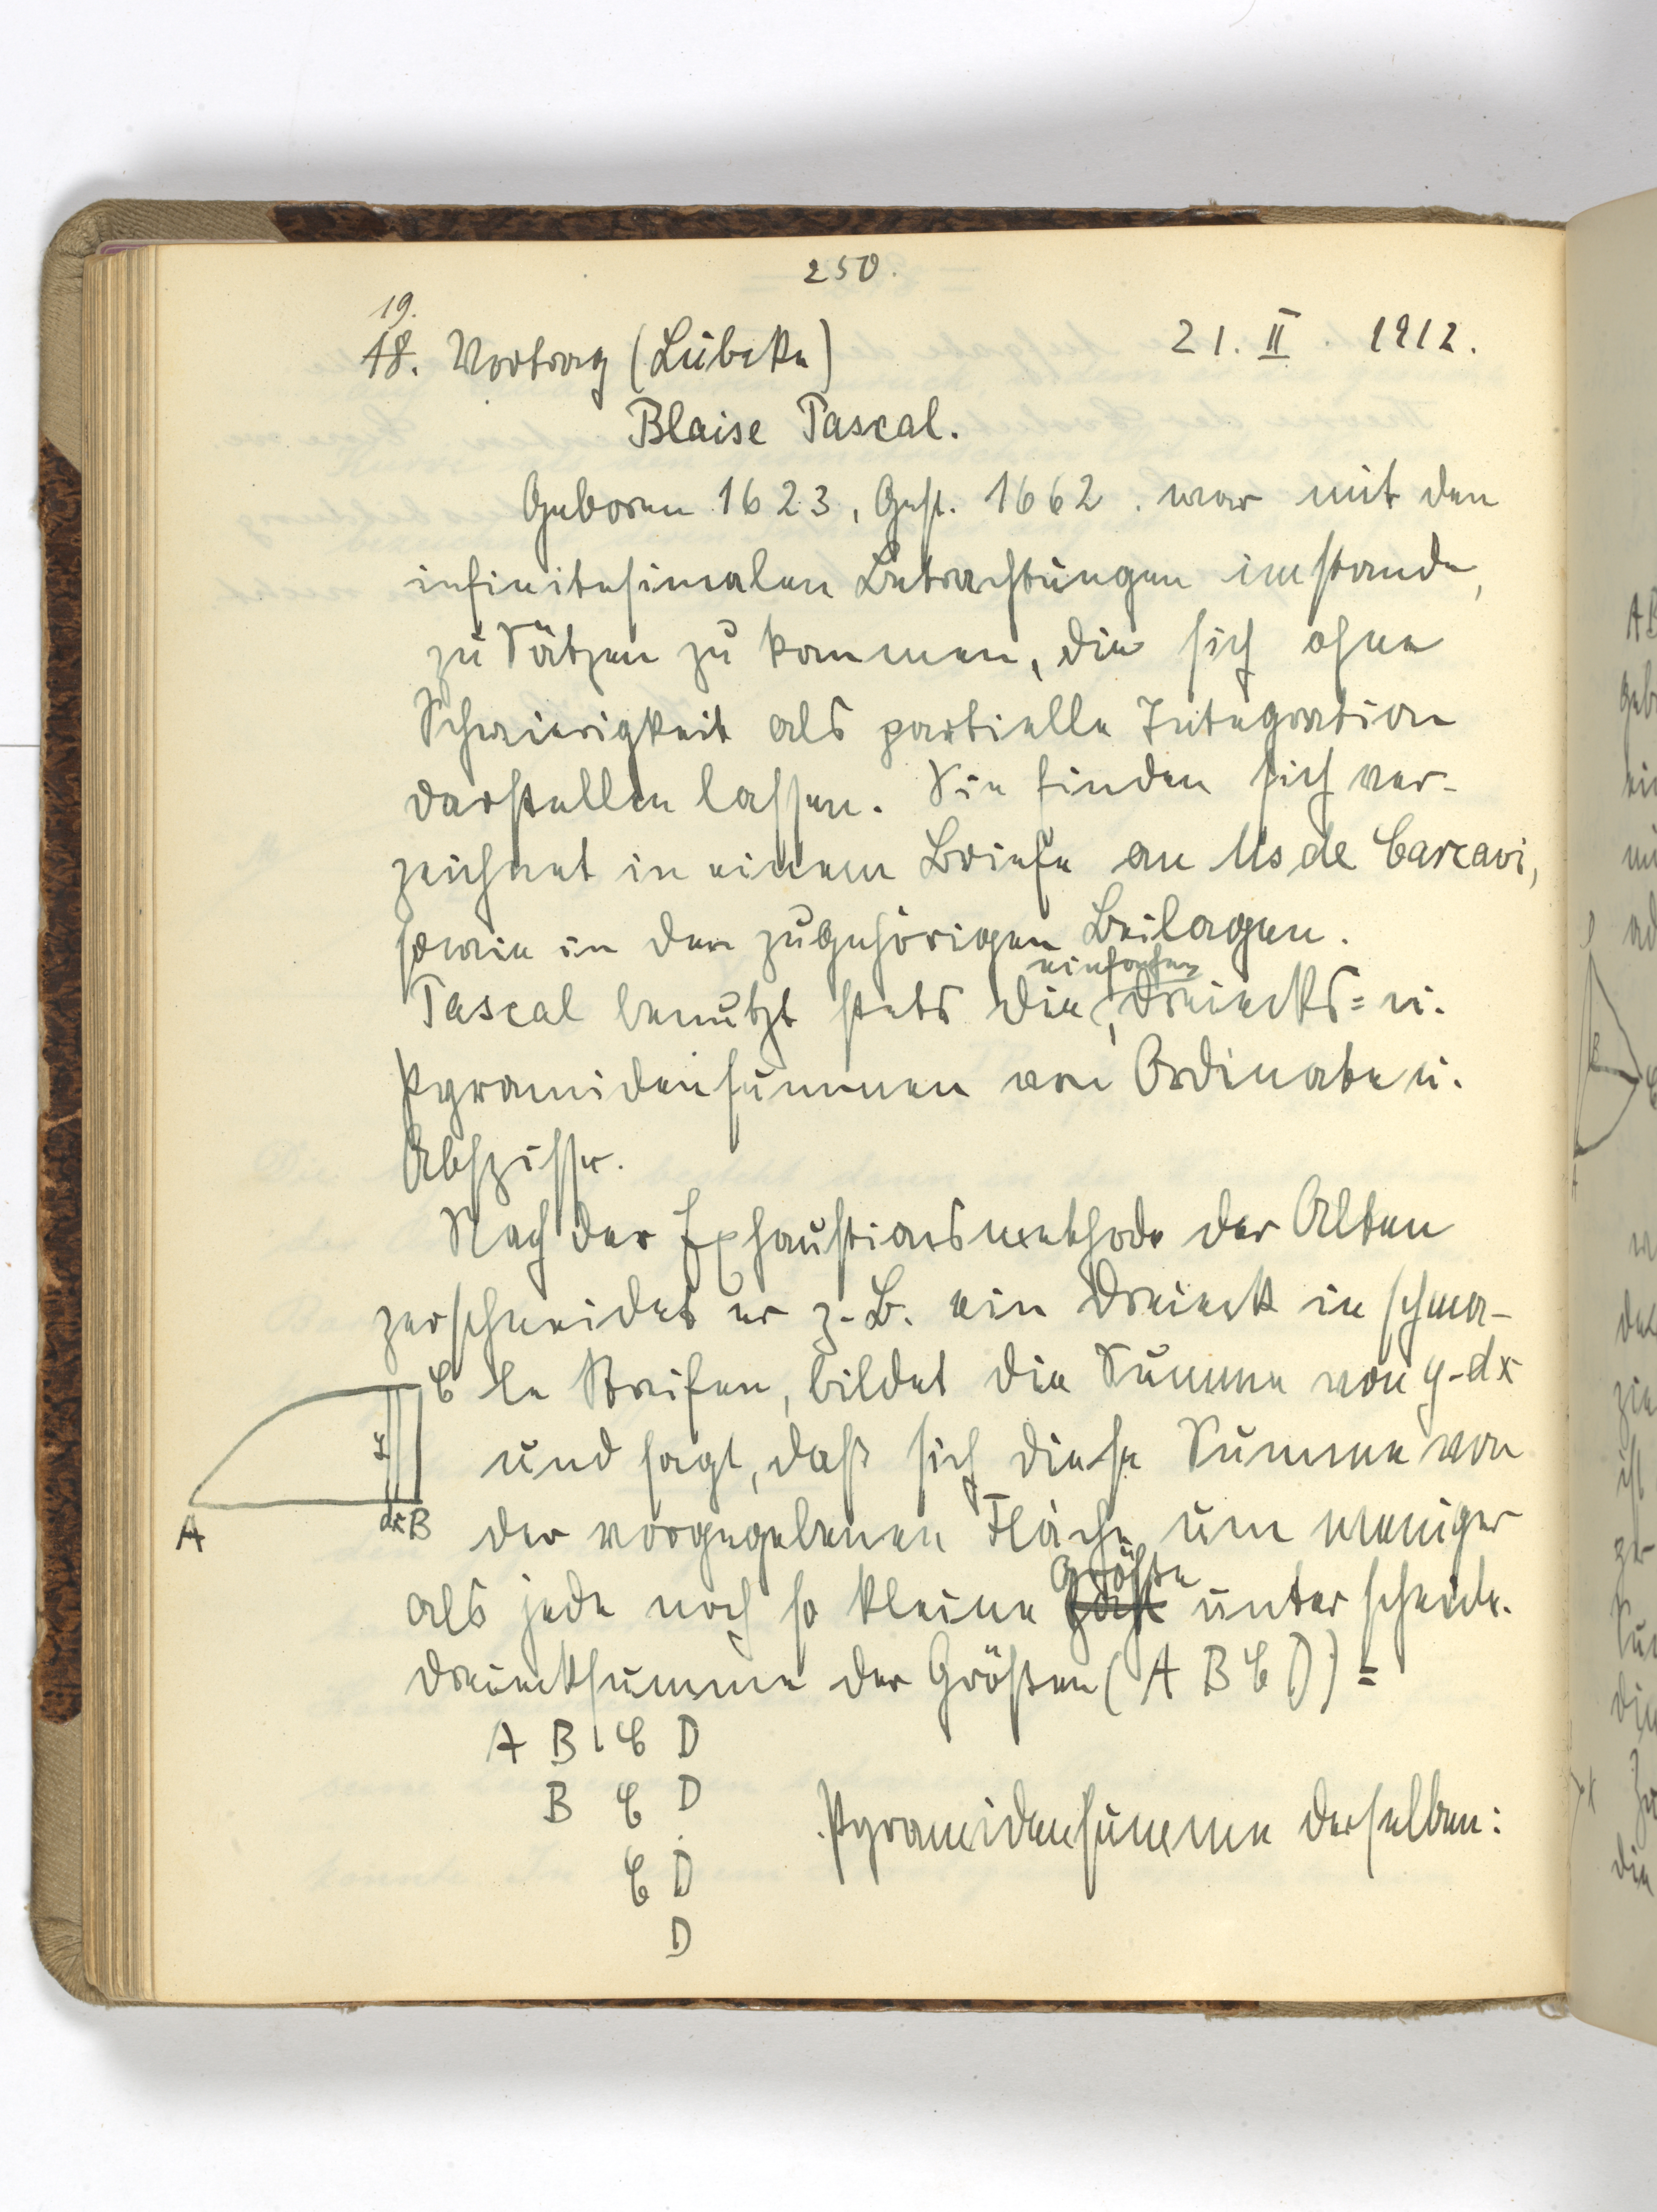 250.
19.
18. Vortrag (Lübcke) 21. II 1912.
Blaise Pascal.
Geboren 1623, Gest. 1662. war mit den
infinitesimalen Betrachtungen imstande,
zu Sätzen zu kommen, die sich ohne
Schwierigkeit als partielle Integration
darstellen lassen. Sie finden sich ver-
zeichnet in einem Briefe an Ms de Carcavi,
sowie in den zugehörigen Beilagen.
einfachen
Pascal benutzt stets die, Dreiecks= u.
Pyramidensummen von Ordinate u.
Abszisse.
Nach der Exhaustionsmethode der Alten
zerschneidet er z. B. ein Dreieck in schma-
C le Streifen, bildet die Summe von y-dx
y und sagt, daß sich diese Summe von
A dx B der vorgegebenen Fläche um weniger
Größe
als jede noch so kleine unterscheide.
Dreiecksumme der Größen (A B C D) =
A B C D
B C D
C D
D
Pyramidensumme derselben: